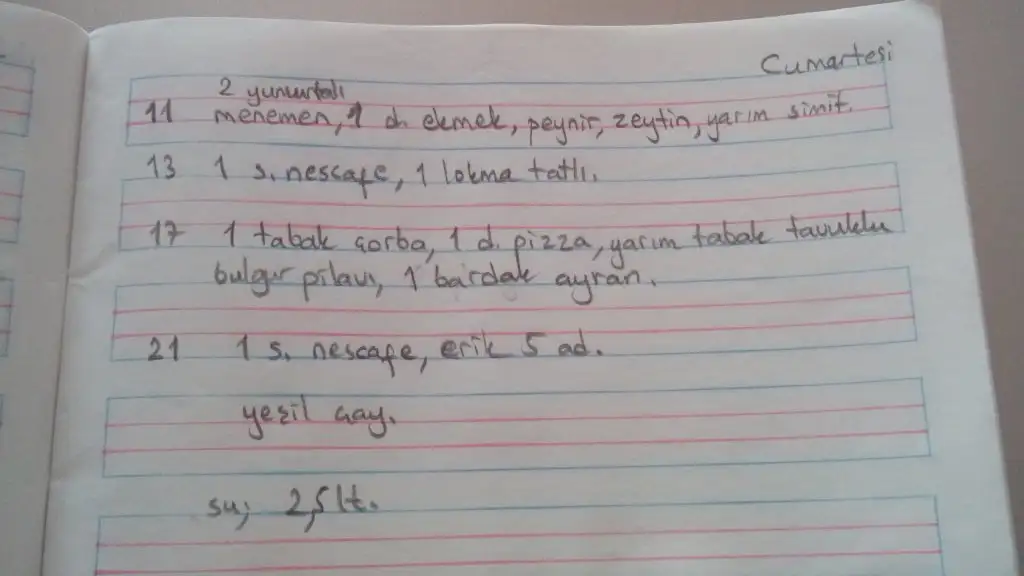 Cumartesi
2 yumurtalı
11 menemen, 1 d. ekmek, peynir, zeytin, yarım simit.
13 1 s. nescafe, 1 lokma tatlı.
17 1 tabak çorba, 1 d. pizza, yarım tabak tavuklu
bulgur pilavı, 1 bardak ayran.
21 1 s. nescafe, erik 5 ad.
yeşil çay.
su; 2,5 lt.